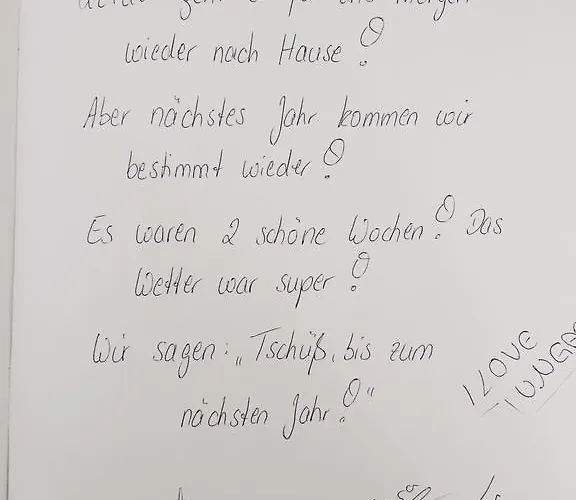 wieder nach Hause!
Aber nächstes Jahr kommen wir
bestimmt wieder!
Es waren 2 schöne Wochen! Das
Wetter war super!
Wir sagen: „Tschüß, bis zum
nächsten Jahr!“
I LOVE